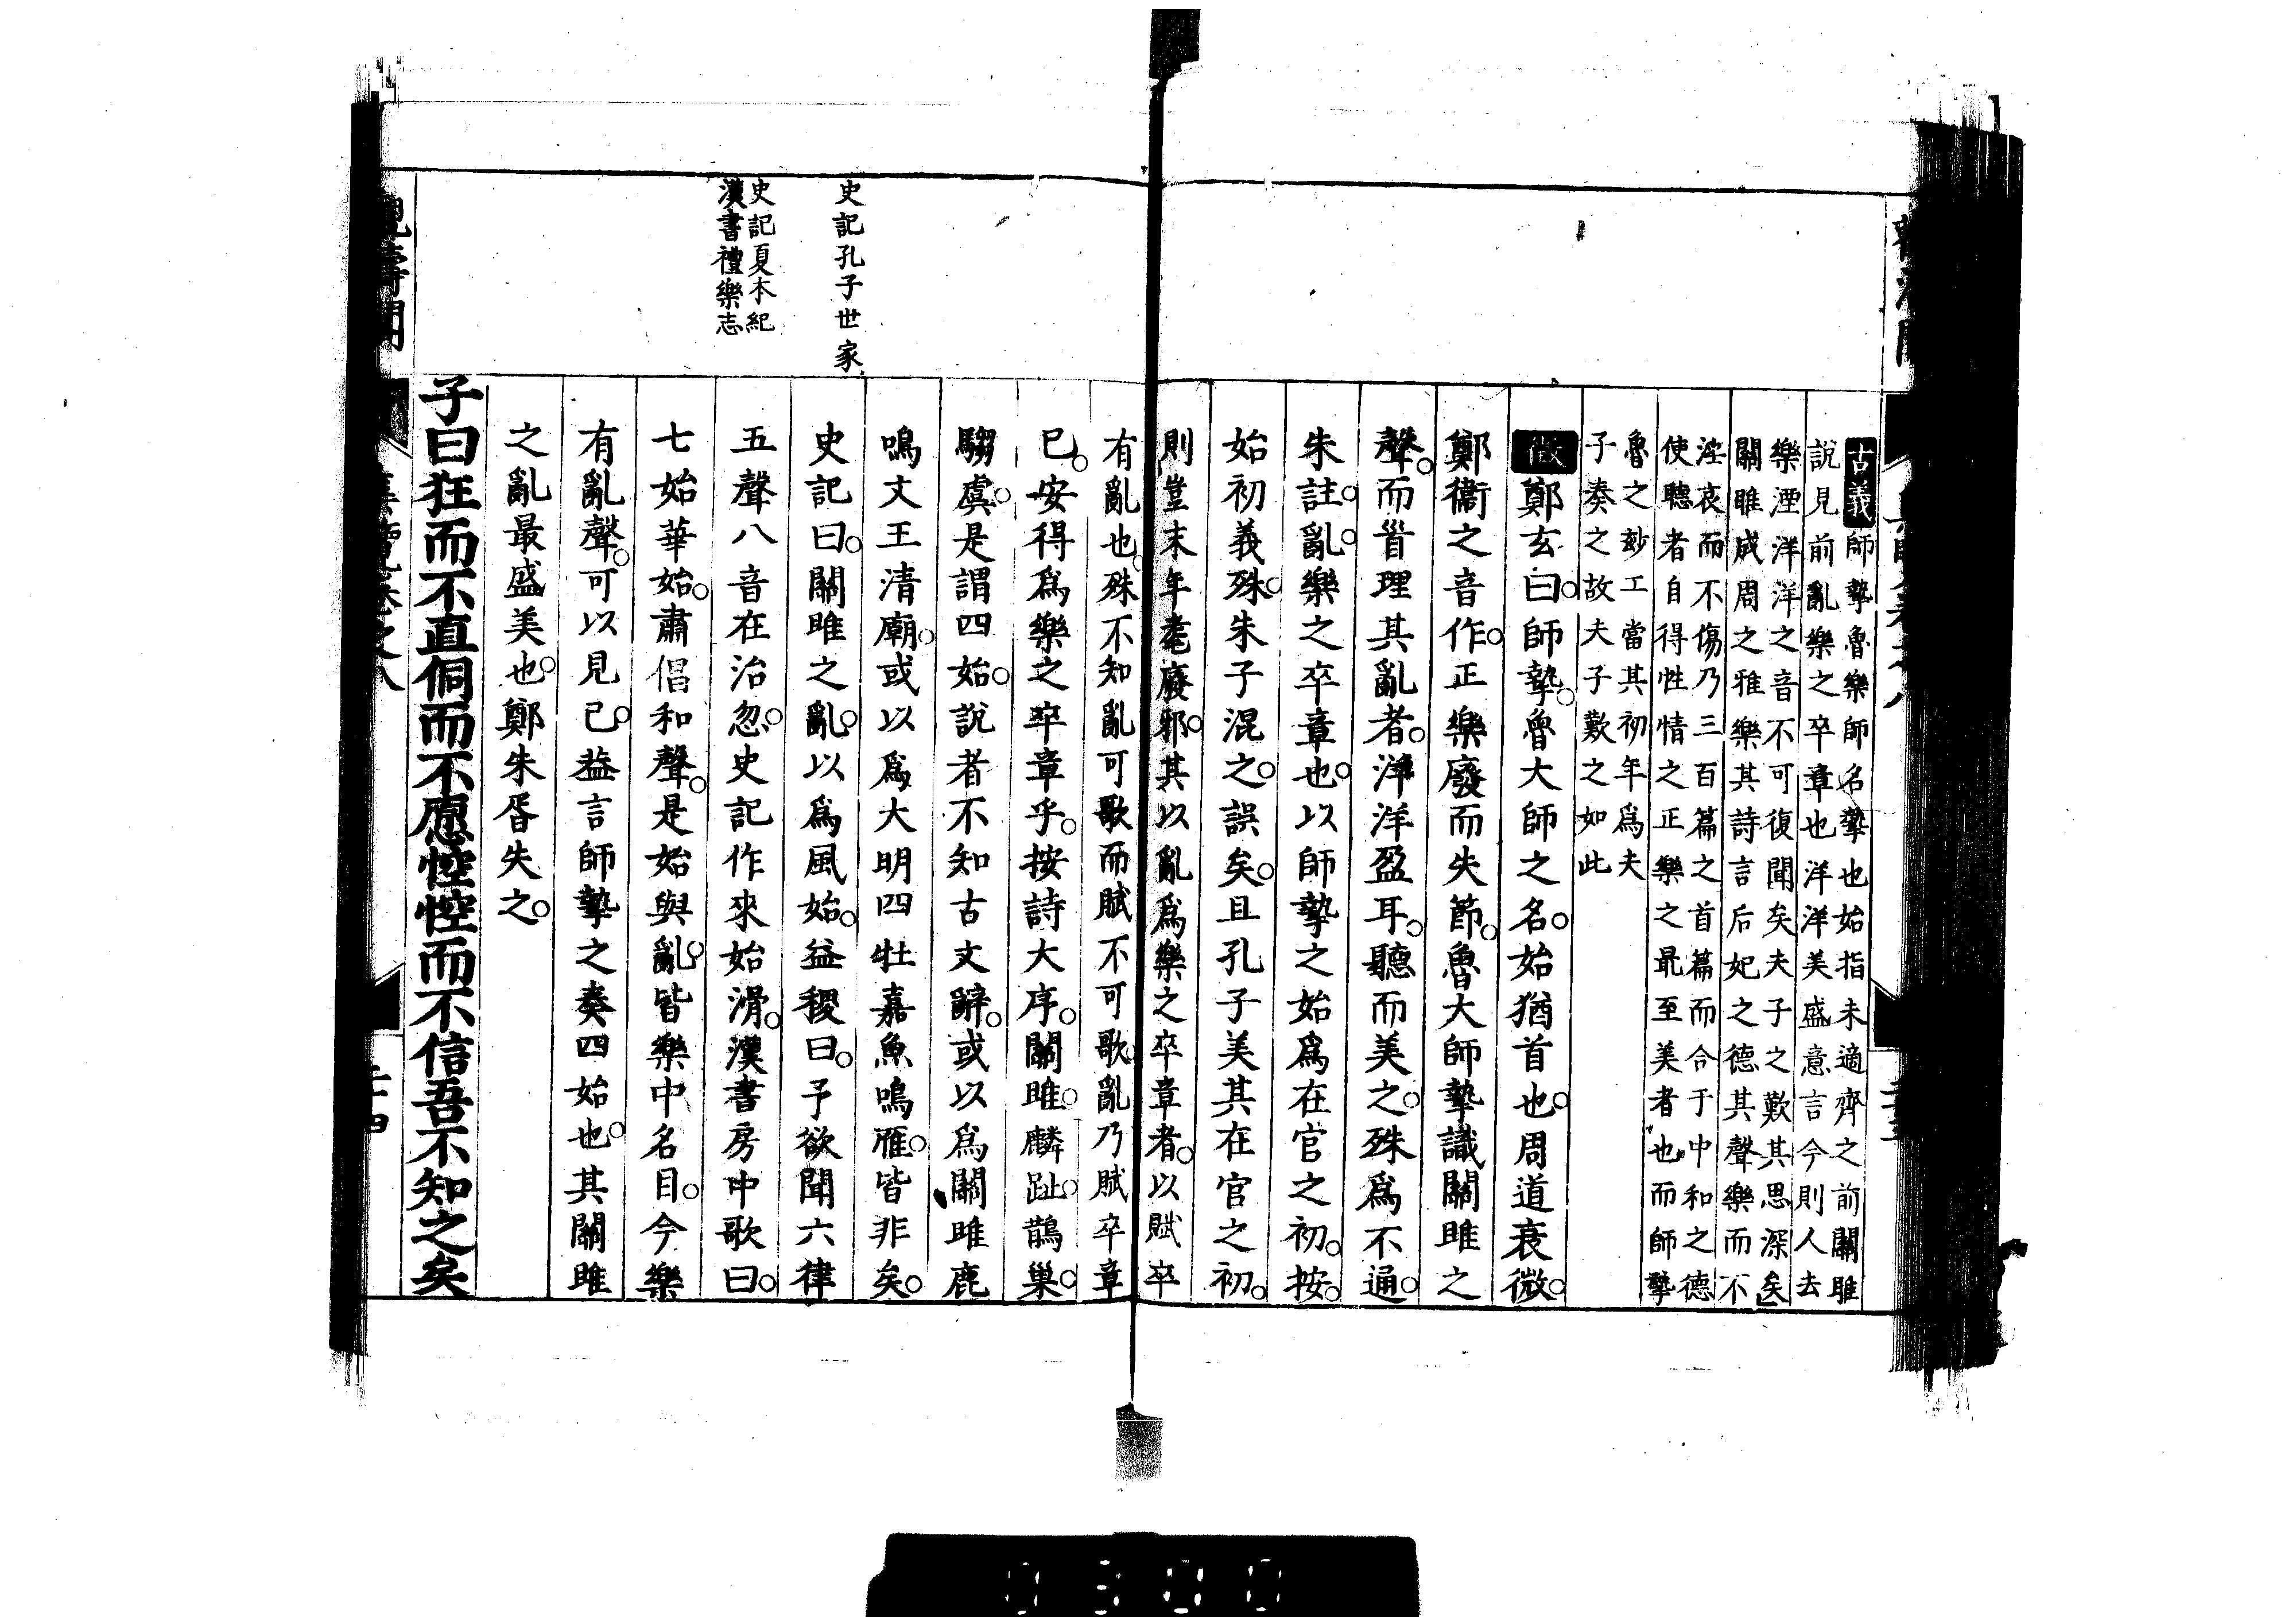 古義師摯魯樂師名摯也始指未適齊之前關雎
說見前亂樂之卒章也洋洋美盛意言今則人去
樂湮洋洋之音不可復聞矣夫子之歎其思深矣
關雎成周之雅樂其詩言后妃之德其聲樂而不
淫哀而不傷乃三百篇之首篇而合于中和之德
使聽者自得性情之正樂之最至美者也而師摯
魯之玅工當其初年爲夫
子奏之故夫子歎之如此
徵鄭玄曰師摯魯大師之名始猶首也周道衰微
鄭衞之音作正樂廢而失節魯大師摯識關雎之
聲而首理其亂者洋洋盈耳聽而美之殊爲不通
朱註亂樂之卒章也以師摯之始爲在官之初按
始初義殊朱子混之誤矣且孔子美其在官之初
則豈末年耄廢邪其以亂爲樂之卒章者以賦卒
有亂也殊不知亂可歌而賦不可歌亂乃賦卒章
已安得爲樂之卒章乎按詩大序關雎麟趾鵲巢
騶虞是謂四始說者不知古文辭或以爲關雎鹿
鳴文王清廟或以爲大明四牡嘉魚鳴雁皆非矣
史記孔子世家
史記曰關雎之亂以爲風始益稷曰予欲聞六律
史記夏本紀
漢書禮樂志
五聲八音在治忽史記作來始滑漢書房中歌曰
七始華始肅倡和聲是始與亂皆樂中名目今樂
有亂聲可以見已益言師摯之奏四始也其關雎
之亂最盛美也鄭朱胥失之
子曰狂而不直侗而不愿悾悾而不信吾不知之矣
0300